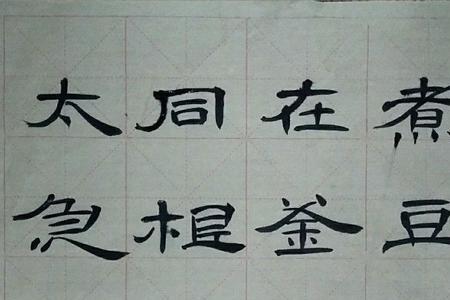 煮豆
在釜
同根
太急